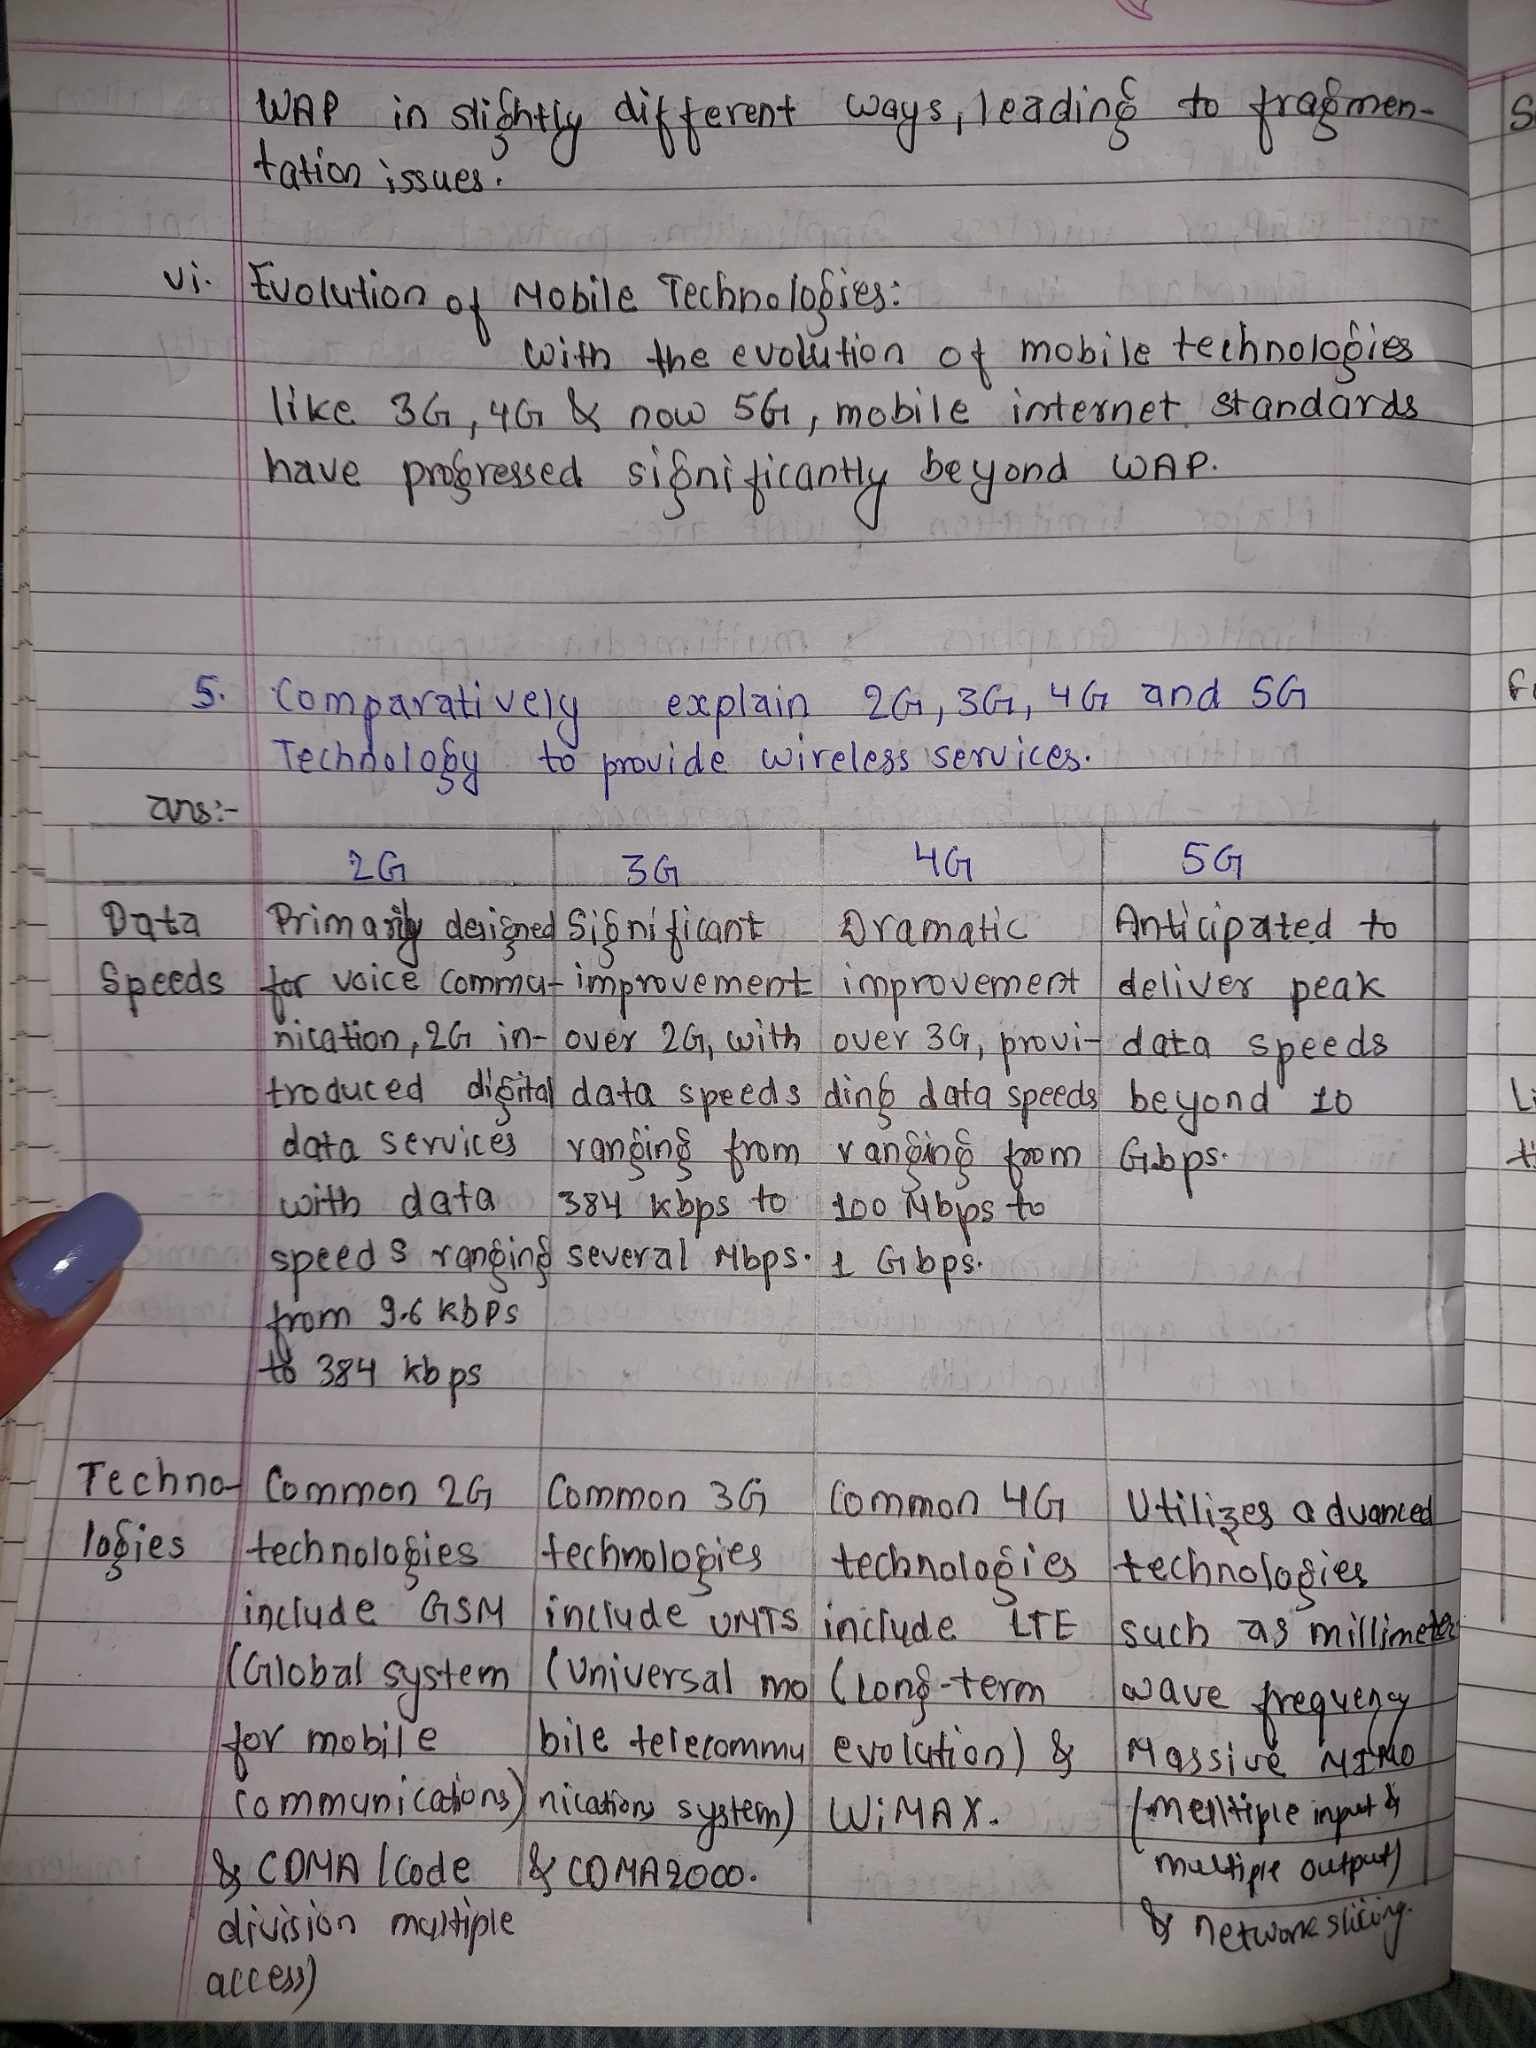 WAP in slightly different ways, leading to fragmen-
tation issues.
vi. Evolution of Mobile Technologies:
With the evolution of mobile technologies
like 3G, 4G & now 5G, mobile internet standards
have progressed significantly beyond WAP.
5. Comparatively explain 2G, 3G, 4G and 5G
Technology to provide wireless services.
ans:-
2G 3G 4G 5G
Data
Speeds
Primarily designed
for voice commu-
nication, 2G in-
troduced digital
data services
with data
speeds ranging
from 9.6 kbps
to 384 kbps
Significant
improvement
over 2G, with
data speeds
ranging from
384 kbps to
several Mbps.
Dramatic
improvement
over 3G, provi-
ding data speeds
ranging from
100 Mbps to
1 Gbps.
Anticipated to
deliver peak
data speeds
beyond 10
Gbps.
Techno-
logies
Common 2G
technologies
include GSM
(Global system
for mobile
communications)
& CDMA (Code
division multiple
access)
Common 3G
technologies
include UMTS
(Universal mo
bile telecommu
nications system)
& CDMA2000.
Common 4G
technologies
include LTE
(Long-term
evolution) &
WiMAX.
Utilizes advanced
technologies
such as millimeter
wave frequency
Massive MIMO
(multiple input &
multiple output)
& network slicing.